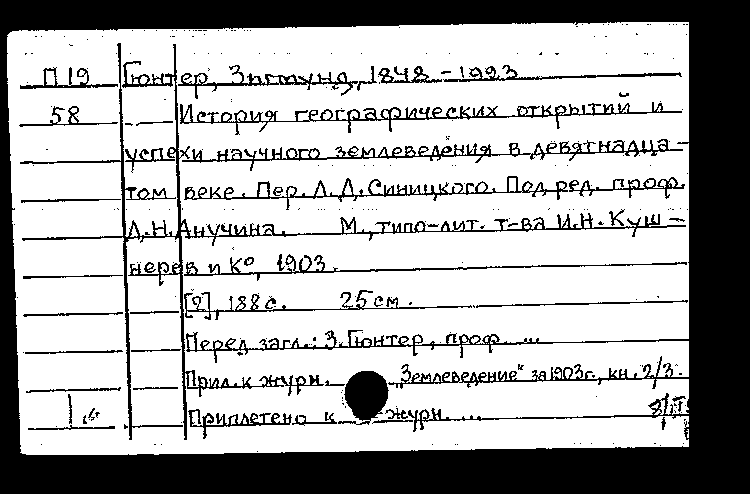 П 19 Гюнтер, Зигмунд, 1848 - 1923
58 История географических открытий и
успехи научного землеведения в девятнадца-
том веке. Пер. Л.Д.Синицкого. Под ред. проф.
Д.Н.Анучина. М., типо-лит. т-ва И.Н.Куш-
нерев и К°, 1903.
[2], 188 с. 25 см.
Перед загл.: З.Гюнтер, проф. ...
Прил. к журн. „Землеведение" за 1903 г., кн. 2/3.
Приплетено к журн. ...